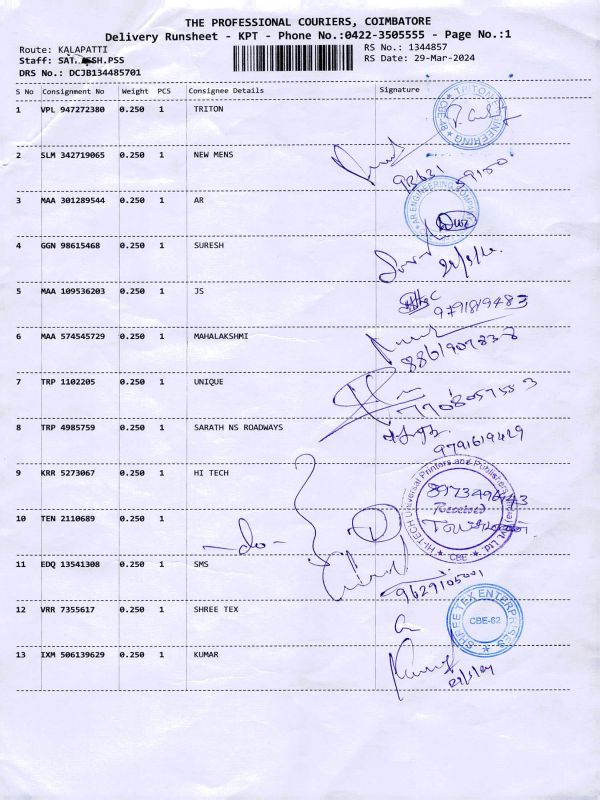 THE PROFESSIONAL COURIERS, COIMBATORE
Delivery Runsheet - KPT - Phone No.:0422-3505555 - Page No.:1
Route: KALAPATTI
RS No.: 1344857
Staff: SAT SH.PSS
RS Date: 29-Mar-2024
DRS No.: DCJB134485701
S No Consignment No Weight PCS Consignee Details Signature
1 VPL 947272380 0.250 1 TRITON
TRITON ENGINEERING
2 SLM 342719065 0.250 1 NEW MENS
93631 59150
3 MAA 301289544 0.250 1 AR
AR ENGINEERING COMPANY
4 GGN 98615468 0.250 1 SURESH
5 MAA 109536203 0.250 1 JS
9791819483
6 MAA 574545729 0.250 1 MAHALAKSHMI
7 TRP 1102205 0.250 1 UNIQUE
8 TRP 4985759 0.250 1 SARATH NS ROADWAYS
9791619429
9 KRR 5273067 0.250 1 HI TECH
HI-TECH Universal Printers and Publishers Pvt. Ltd.
Received
CBE
10 TEN 2110689 0.250 1
-do-
11 EDQ 13541308 0.250 1 SMS
9629105001
12 VRR 7355617 0.250 1 SHREE TEX
SHREE TEX ENTERPRISES
CBE-62
13 IXM 506139629 0.250 1 KUMAR